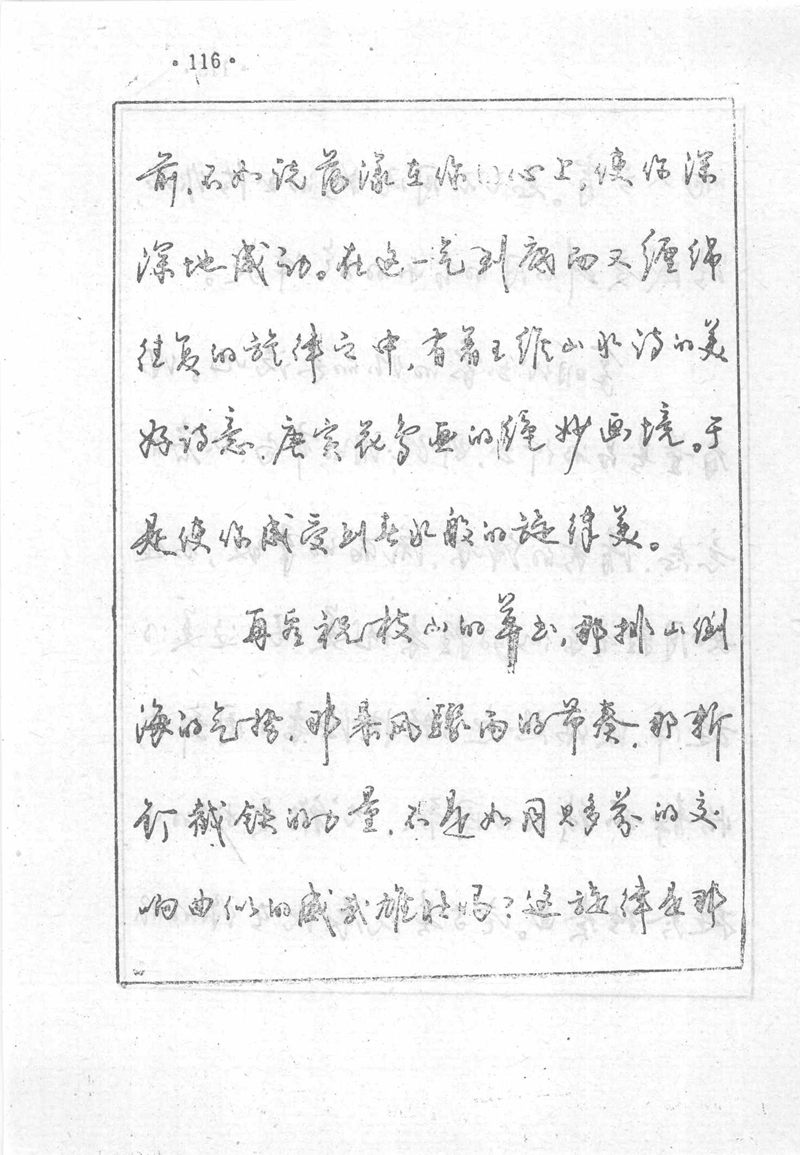 ·116·
前,不如说荡漾在你的心上,使你深
深地感动。在这一气到底而又缠绵
往复的旋律之中,有着王维山水诗的美
好诗意,唐寅花鸟画的绝妙画境。于
是使你感受到春水般的旋律美。
再看祝枝山的草书,那排山倒
海的气势,那暴风骤雨的节奏,那斩
钉截铁的力量,不是如同贝多芬的交
响曲似的威武雄壮吗?这旋律是那